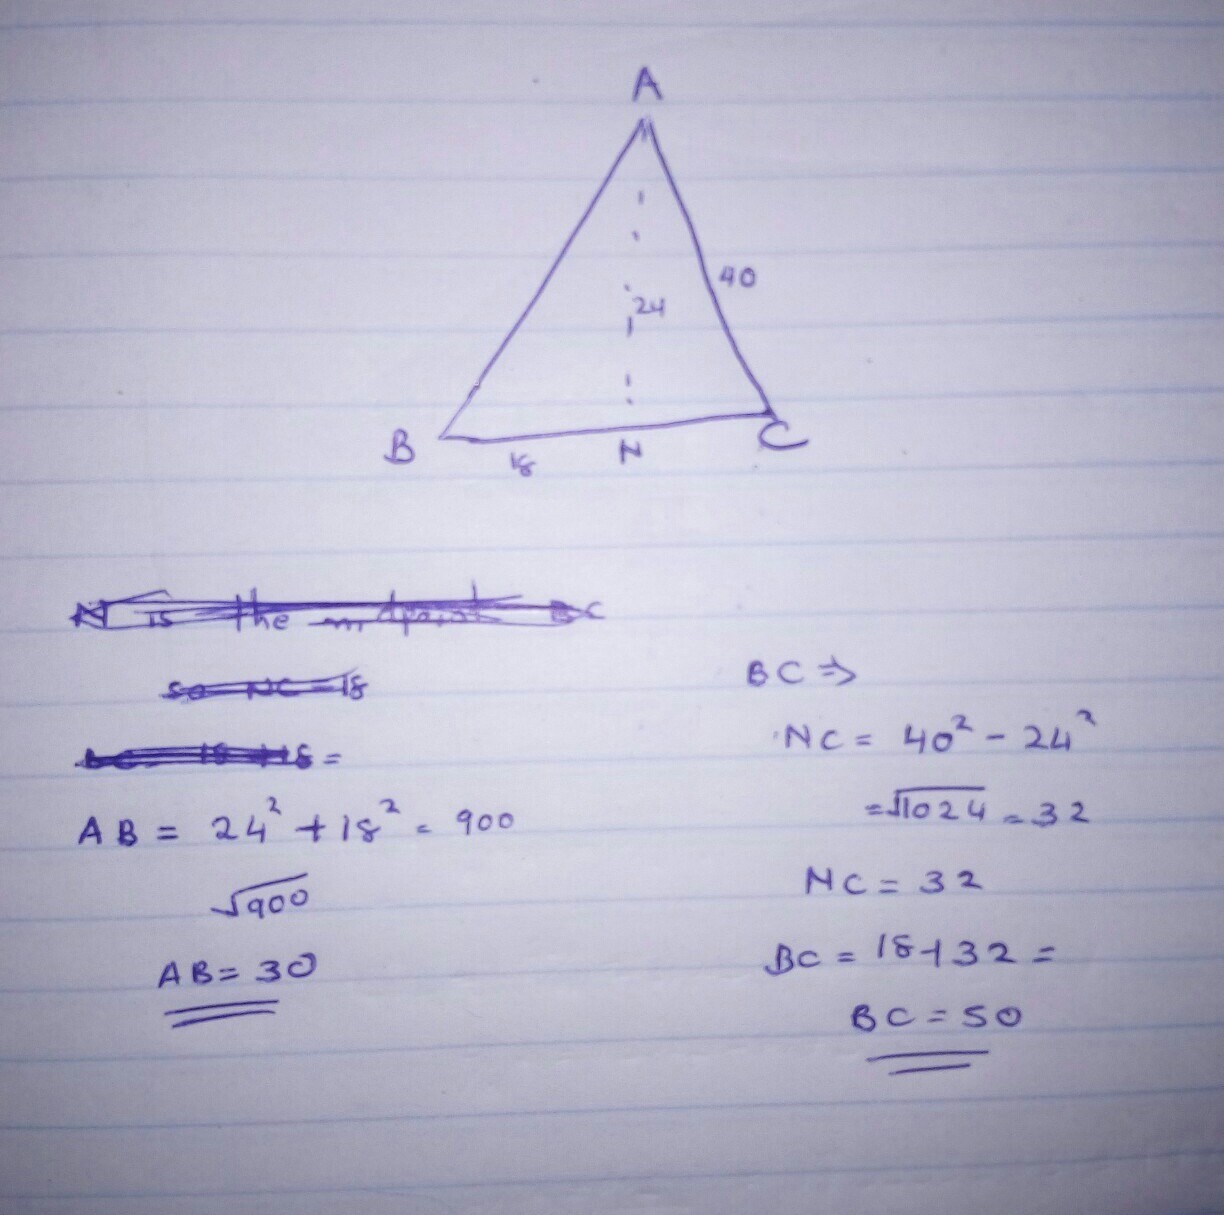 A
40
24
B
C
18
N
N is the midpoint BC
so NC = 18
18 + 18 =
AB = 24² + 18² = 900
√900
AB = 30
BC ⇒
NC = 40² - 24²
= √1024 = 32
NC = 32
BC = 18 + 32 =
BC = 50